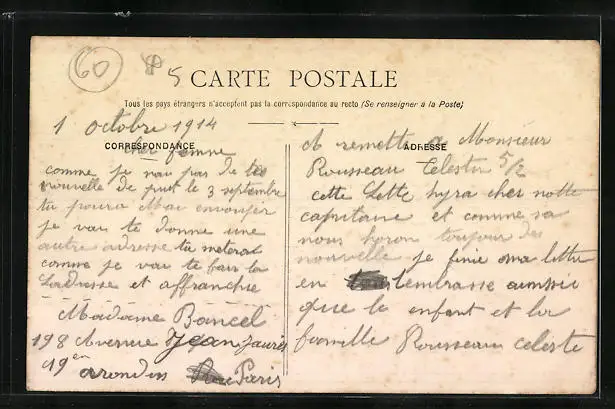 60 5
CARTE POSTALE
Tous les pays étrangers n'acceptent pas la correspondance au recto (Se renseigner à la Poste)
CORRESPONDANCE
1 octobre 1914
cher femme
comme je nai pas de tes
nouvelle de puit le 3 septembre
tu poura Mac envoyer
je vai te donne une
autre adresse tu meteras
comme je vai te fair la
Ladresse et affranchie
Madame Bancel
198 Avenue Jean Jaures
19 en arondis Paris
ADRESSE
A remette a Monsieur
Rousseau Celestin 5/2
cette Lette hyra cher notte
capitaine et comme sa
nous horon toujour des
nouvelle je finie ma lettre
en tembrasse aumsie
que le enfant et la
famille Rousseau celeste